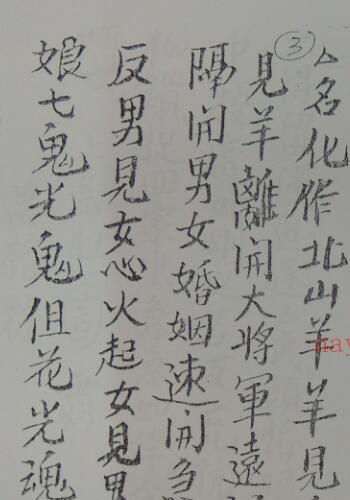 ③
厶名化作北山羊羊見
見羊離開大將軍遠
隔開男女婚姻速開
反男見女心火起女見男
娘七鬼光鬼但花光魂